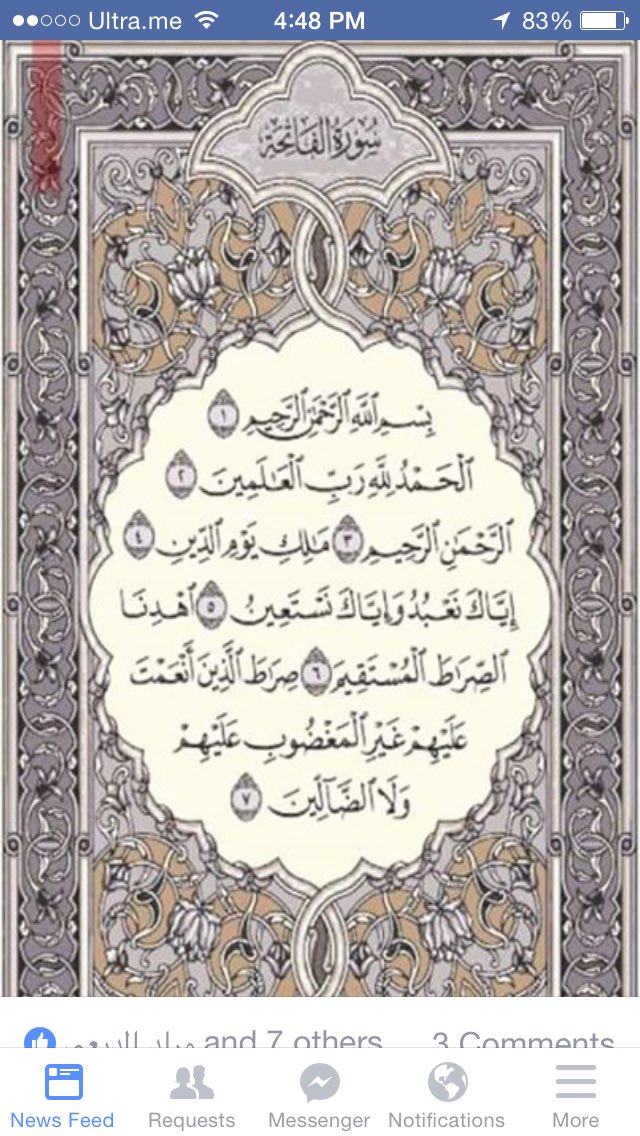 Ultra.me 4:48 PM 83%
سُورَةُ الفَاتِحَةِ
بِسْمِ اللَّهِ الرَّحْمَٰنِ الرَّحِيمِ ١
الْحَمْدُ لِلَّهِ رَبِّ الْعَالَمِينَ ٢
الرَّحْمَٰنِ الرَّحِيمِ ٣ مَالِكِ يَوْمِ الدِّينِ ٤
إِيَّاكَ نَعْبُدُ وَإِيَّاكَ نَسْتَعِينُ ٥ اهْدِنَا
الصِّرَاطَ الْمُسْتَقِيمَ ٦ صِرَاطَ الَّذِينَ أَنْعَمْتَ
عَلَيْهِمْ غَيْرِ الْمَغْضُوبِ عَلَيْهِمْ
وَلَا الضَّالِّينَ ٧
and 7 others 3 Comments
News Feed Requests Messenger Notifications More